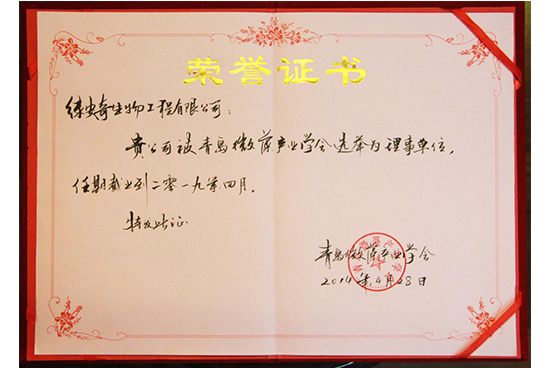 荣誉证书
绿安奇生物工程有限公司：
贵公司被青岛微藻产业学会选举为理事单位，
任期截止到二零一九年四月。
特发此证
青岛微藻产业学会
2014年4月28日